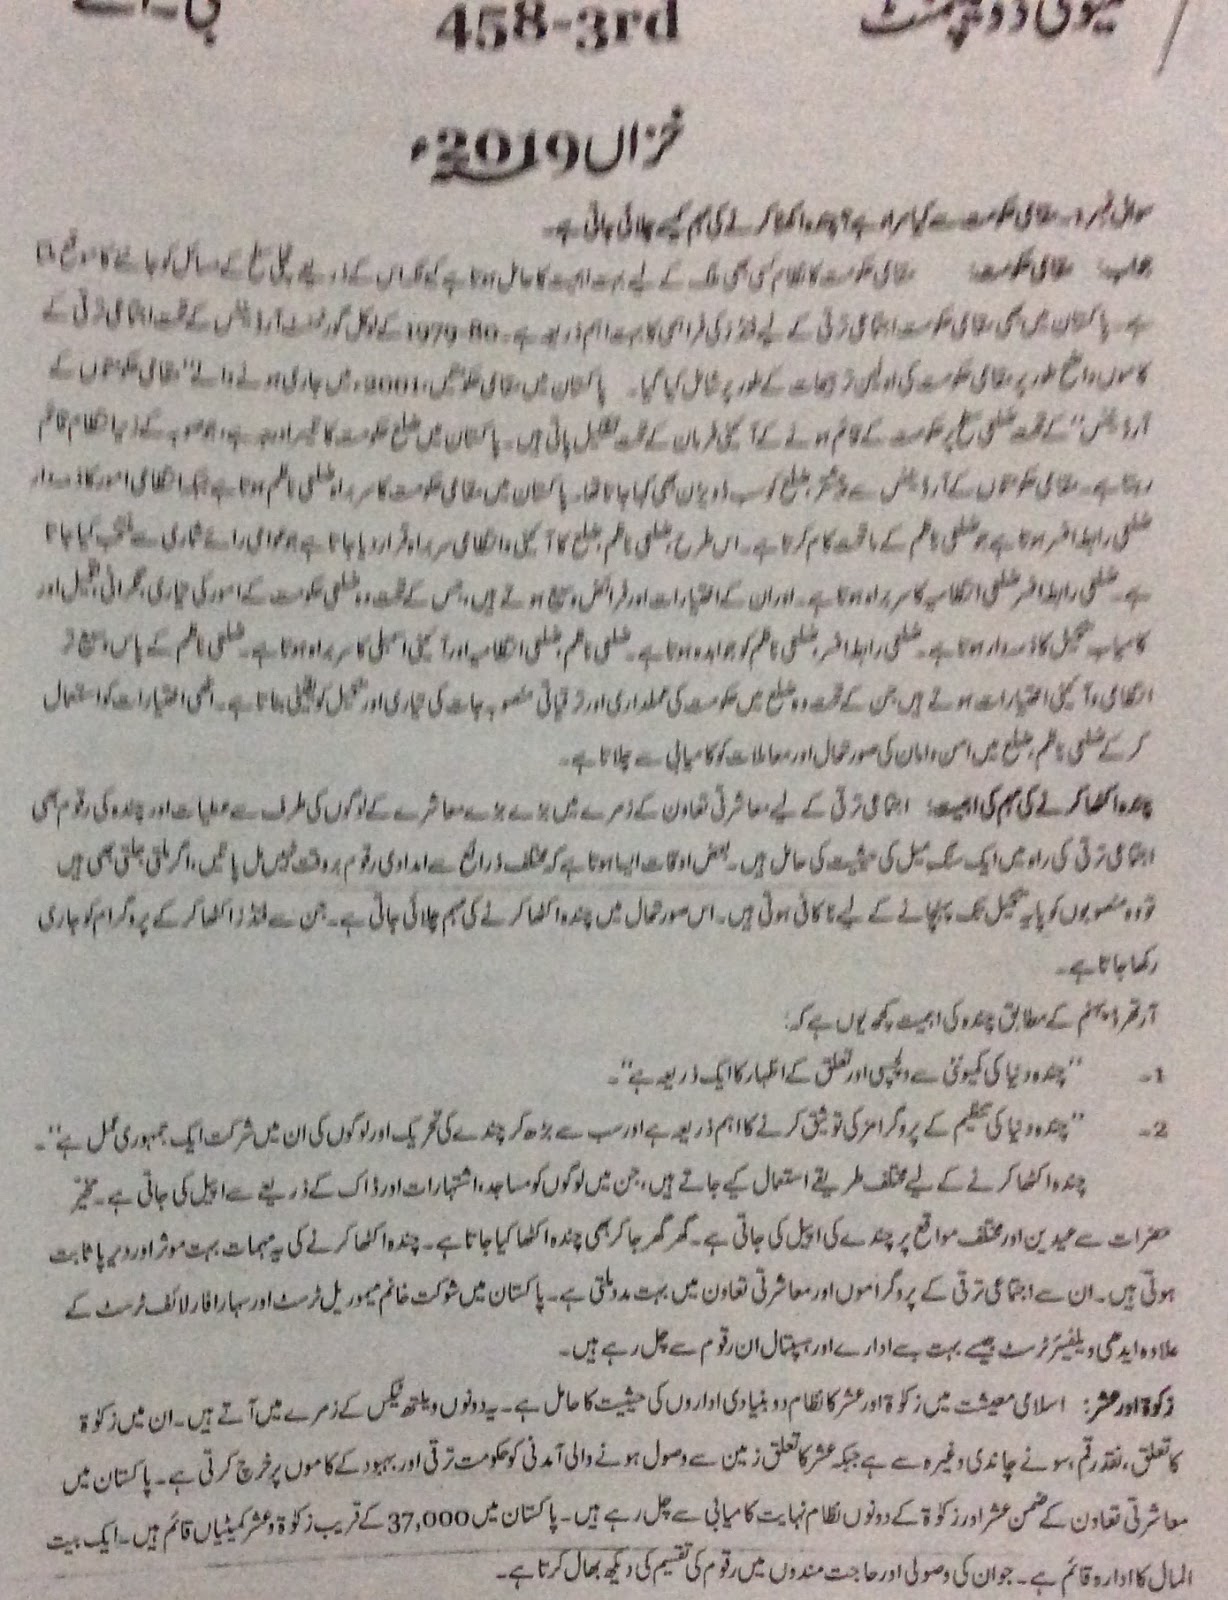 458-3rd بی-اے
خزاں 2019ء
سوال نمبر 1۔ مقامی حکومت سے کیا مراد ہے؟ چندہ اکٹھا کرنے کی مہم کیسے چلائی جاتی ہے۔
جواب: مقامی حکومت: مقامی حکومت کا نظام کسی بھی ملک کے لیے بہت اہمیت کا حامل ہوتا ہے کیونکہ اس کے ذریعے نچلی سطح کے مسائل کو جاننے کا موقع
ہے۔ پاکستان میں بھی مقامی حکومت اجتماعی ترقی کے لیے فنڈز کی فراہمی کا بہت اہم ذریعہ ہے۔ 1979-80 کے لوکل گورنمنٹ آرڈیننس کے تحت اجتماعی ترقی کے
کاموں واضح طور پر مقامی حکومت کی اولین ترجیحات کے طور پر شامل کیا گیا۔ پاکستان میں مقامی حکومتیں، 2001ء میں جاری ہونے والے "مقامی حکومتوں کے
آرڈیننس" کے تحت ضلعی سطح پر حکومت کے قائم ہونے کے آئینی فرمان کے تحت تشکیل پاتی ہیں۔ پاکستان میں ضلع حکومت کا تیسرا درجہ ہے، جو صوبہ کے زیر انتظام قائم
رہتا ہے۔ مقامی حکومتوں کے آرڈیننس سے پیشتر، ضلع کو سب ڈویژن بھی کہا جاتا تھا۔ پاکستان میں مقامی حکومت کا سربراہ ضلعی ناظم ہوتا ہے جبکہ انتظامی امور کا ذمہ دار
ضلعی رابطہ افسر ہوتا ہے جو ضلعی ناظم کے ماتحت کام کرتا ہے۔ اس طرح، ضلعی ناظم، ضلع کا آئینی و انتظامی سربراہ قرار دیا جاتا ہے جو عوامی رائے شماری سے منتخب کیا جاتا
ہے۔ ضلعی رابطہ افسر ضلعی انتظامیہ کا سربراہ ہوتا ہے۔ اور ان کے اختیارات اور فرائض وسیع ہوتے ہیں، جس کے تحت وہ ضلعی حکومت کے امور کی تیاری، نگرانی، تعمیل اور
کامیاب تکمیل کا ذمہ دار ہوتا ہے۔ ضلعی رابطہ افسر، ضلعی ناظم کو جوابدہ ہوتا ہے۔ ضلعی ناظم، ضلعی انتظامیہ اور آئینی اسمبلی کا سربراہ ہوتا ہے۔ ضلعی ناظم کے پاس وسیع تر
انتظامی و آئینی اختیارات ہوتے ہیں جن کے تحت وہ ضلع میں حکومت کی عملداری اور ترقیاتی منصوبہ جات کی تیاری اور تکمیل کو یقینی بناتا ہے۔ انہی اختیارات کو استعمال
کر کے ضلعی ناظم، ضلع میں امن و امان کی صورتحال اور معاملات کو کامیابی سے چلاتا ہے۔
چندہ اکٹھا کرنے کی مہم کی اہمیت: اجتماعی ترقی کے لیے معاشرتی تعاون کے زمرے میں بڑے بڑے معاشرے کے لوگوں کی طرف سے عطیات اور چندہ کی رقوم بھی
اجتماعی ترقی کی راہ میں ایک سنگ میل کی حیثیت کی حامل ہیں۔ بعض اوقات ایسا ہوتا ہے کہ مختلف ذرائع سے امدادی رقوم بروقت نہیں مل پاتیں، اگر ملتی جلتی بھی ہیں
تو وہ منصوبوں کو پایہ تکمیل تک پہنچانے کے لیے ناکافی ہوتی ہیں۔ اس صورتحال میں چندہ اکٹھا کرنے کی مہم چلائی جاتی ہے۔ جن سے فنڈز اکٹھا کر کے پروگرام کو جاری
رکھا جاتا ہے۔
آرتھر ڈنہم کے مطابق چندہ کی اہمیت کچھ یوں ہے کہ:
1۔ "چندہ دنیا کی کمیونٹی سے دلچسپی اور تعلق کے اظہار کا ایک ذریعہ ہے"۔
2۔ "چندہ دنیا کی تنظیم کے پروگرامز کی توثیق کرنے کا اہم ذریعہ ہے اور سب سے بڑھ کر چندے کی تحریک اور لوگوں کی ان میں شرکت ایک جمہوری عمل ہے"۔
چندہ اکٹھا کرنے کے لیے مختلف طریقے استعمال کیے جاتے ہیں، جن میں لوگوں کو مساجد، اشتہارات اور ڈاک کے ذریعے سے اپیل کی جاتی ہے۔ مخیر
حضرات سے عیدین اور مختلف مواقع پر چندے کی اپیل کی جاتی ہے۔ گھر گھر جا کر بھی چندہ اکٹھا کیا جاتا ہے۔ چندہ اکٹھا کرنے کی یہ مہمات بہت موثر اور دیرپا ثابت
ہوتی ہیں۔ ان سے اجتماعی ترقی کے پروگراموں اور معاشرتی تعاون میں بہت مدد ملتی ہے۔ پاکستان میں شوکت خانم میموریل ٹرسٹ اور سہارا فار لائف ٹرسٹ کے
علاوہ ایدھی ویلفیئر ٹرسٹ جیسے بہت سے ادارے اور ہسپتال ان رقوم سے چل رہے ہیں۔
زکوٰۃ اور عشر: اسلامی معیشت میں زکوٰۃ اور عشر کا نظام دو بنیادی اداروں کی حیثیت کا حامل ہے۔ یہ دونوں ویلتھ ٹیکس کے زمرے میں آتے ہیں۔ ان میں زکوٰۃ
کا تعلق، نقد رقم، سونے چاندی وغیرہ سے ہے جبکہ عشر کا تعلق زمین سے وصول ہونے والی آمدنی کو حکومت ترقی اور بہبود کے کاموں پر خرچ کرتی ہے۔ پاکستان میں
معاشرتی تعاون کے ضمن عشر اور زکوٰۃ کے دونوں نظام نہایت کامیابی سے چل رہے ہیں۔ پاکستان میں 37,000 کے قریب زکوٰۃ و عشر کمیٹیاں قائم ہیں۔ ایک بیت
المال کا ادارہ قائم ہے۔ جو ان کی وصولی اور حاجت مندوں میں رقوم کی تقسیم کی دیکھ بھال کرتا ہے۔